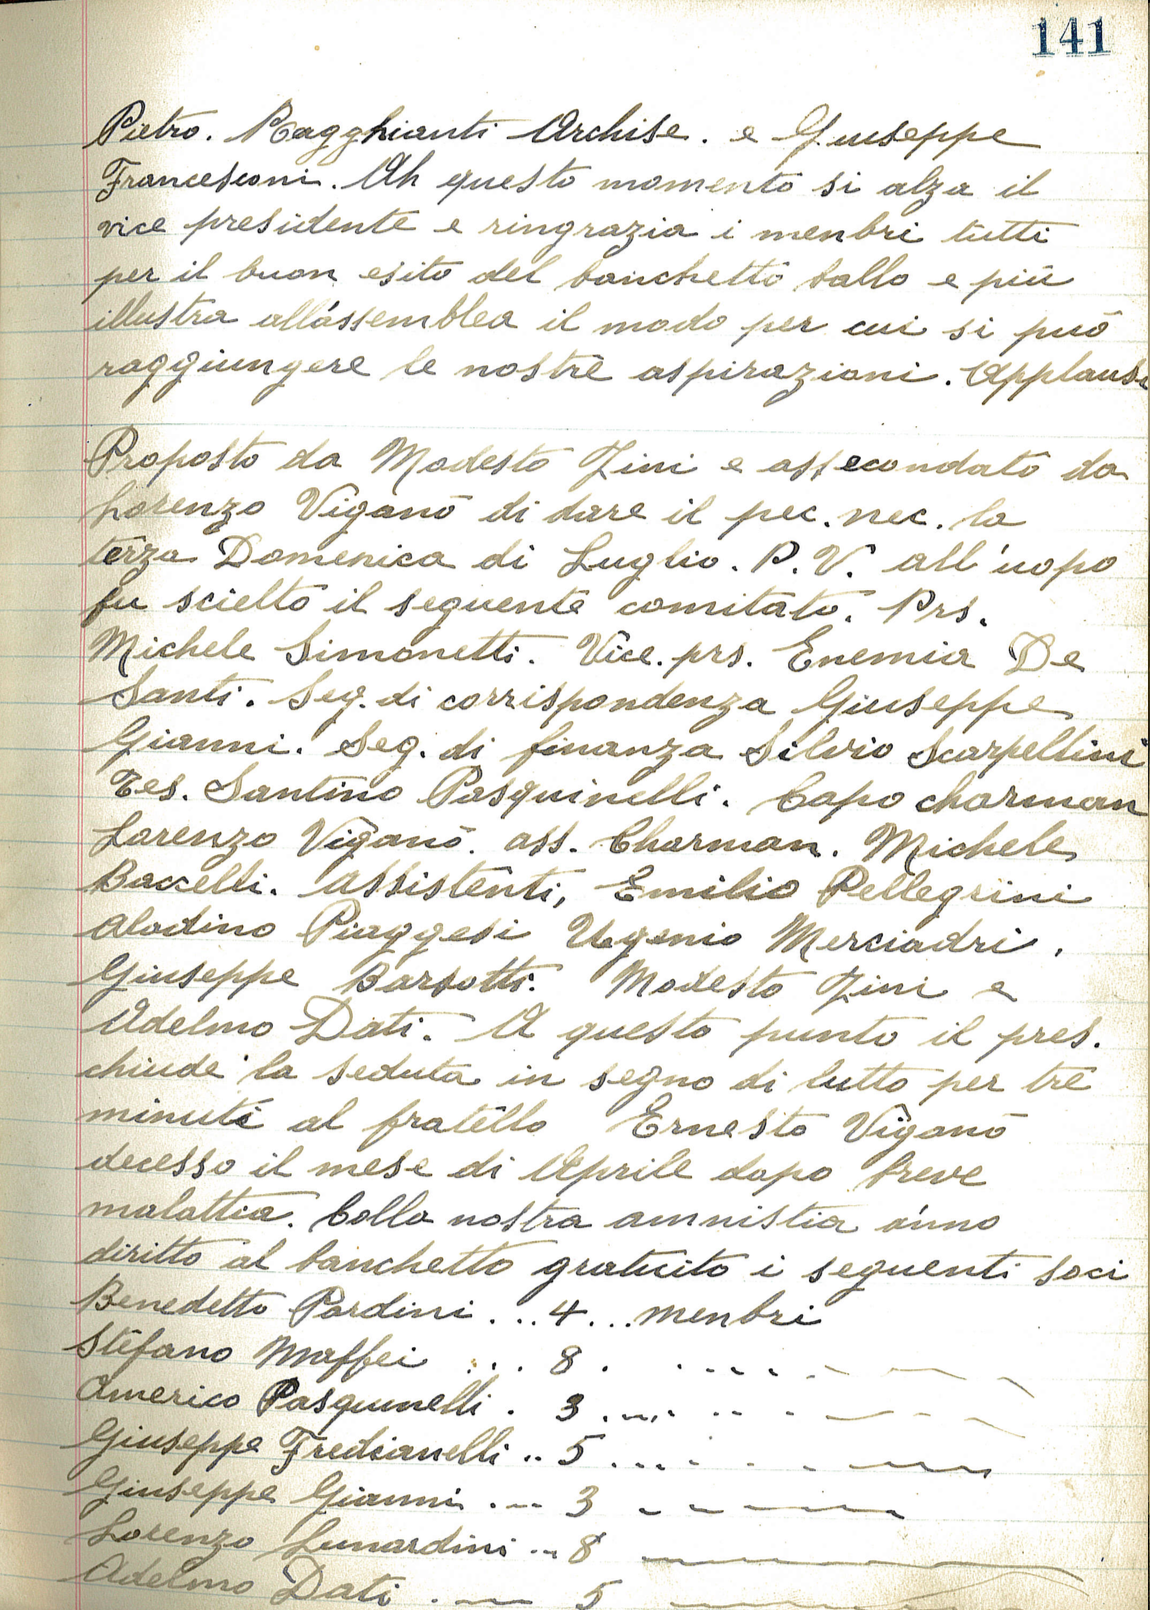 141
Pietro. Ragghianti Archise. e Giuseppe
Francesconi. Ah questo momento si alza il
vice presidente e ringrazia i menbri tutti
per il buon esito del banchetto ballo e più
illustra all'assemblea il modo per cui si può
raggiungere le nostre aspirazioni. Applausi
Proposto da Modesto Zini e assecondato da
Lorenzo Viganò di dare il pec. nec. la
terza Domenica di Luglio. P. V. all'uopo
fu scielto il seguente comitato. Prs.
Michele Simonetti. Vice. prs. Enemia De
Santi. Seg. di corrispondenza Giuseppe
Gianni. Seg. di finanza Silvio Scarpellini
Tes. Santino Pasquinelli. Capo charman
Lorenzo Viganò. ass. Charman. Michele
Baccelli. Assistenti, Emilio Pellegrini
Aladino Piaggesi Ugenio Merciadri.
Giuseppe Barsotti. Modesto Zini e
Adelmo Dati. A questo punto il pres.
chiude la seduta in segno di lutto per tre
minuti al fratello Ernesto Viganò
decesso il mese di Aprile dopo breve
malattia. Colla nostra amnistia ànno
diritto al banchetto gratuito i seguenti soci
Benedetto Pardini ... 4 ... menbri
Stefano Maffei ... 8 .
Americo Pasquinelli . 3 ....
Giuseppe Fredianelli .. 5 ....
Giuseppe Gianni ... 3
Lorenzo Lunardini ... 8
Adelmo Dati ... 5